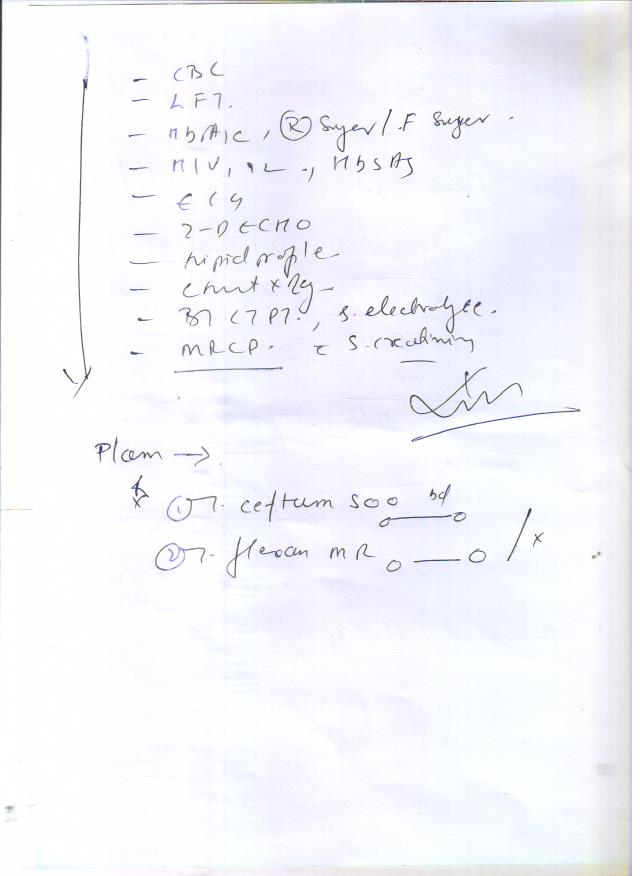 - CBC
- LFT.
- HbA1c, (R) Suger / .F Suger.
- HIV, ., HbsAg
- ECG
- 2-D ECHO
- Lipid profile
- Chest x Ry -
- BT CT PT., S. electrolyte.
- MRCP. c̄ S. creatinine
Plam →
① T. ceftum 500 bd
② T. flexan MR o — o / x